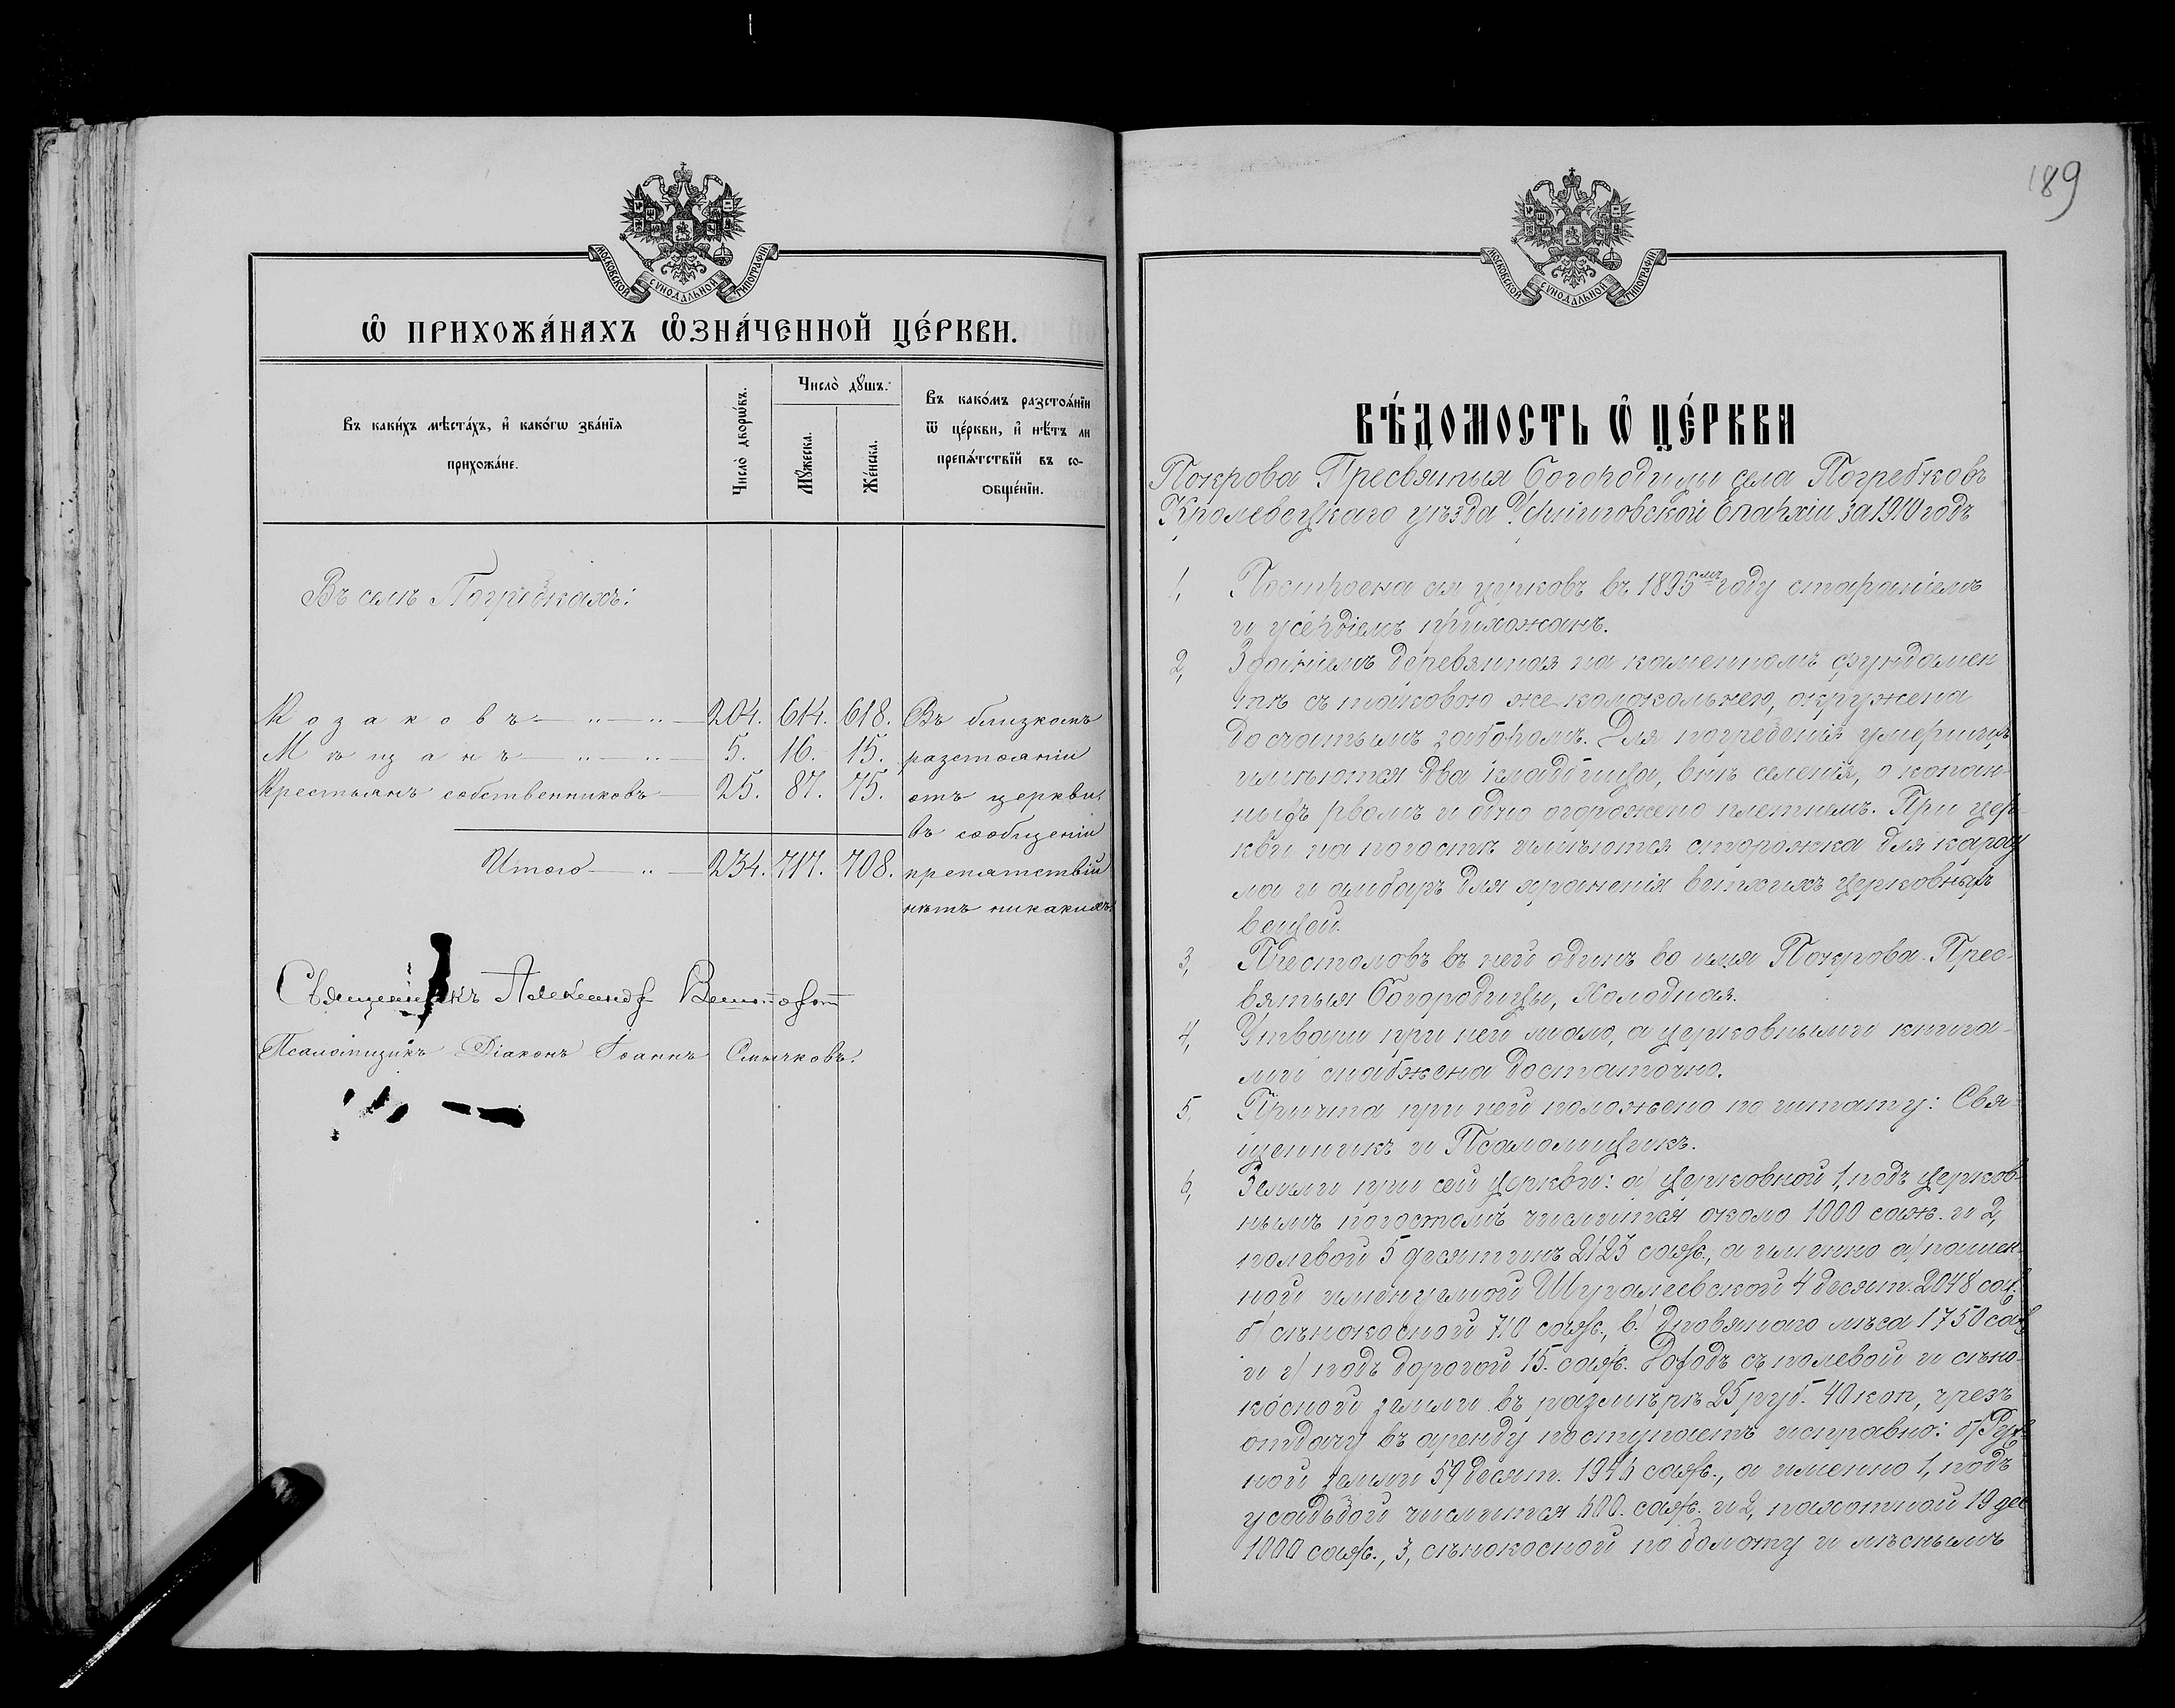 МОСКОВСКОЙ СѴНОДАЛЬНОЙ ТИПОГРАФІИ
Ѡ ПРИХОЖА́НАХЪ Ѡ҆ЗНА́ЧЕННОЙ ЦЕ́РКВИ.
Въ каки́хъ мѣста́хъ, и҆ како́гѡ зва́нїѧ прихожа́не.
Число̀ дворѡ́въ.
Число̀ дꙋ́шъ.
Мꙋ́жеска.
Же́нска.
Въ како́мъ разстоѧ́нїи
ѿ це́ркви, и҆ нѣ́тъ ли
препѧ́тствїй въ со-
ѻбще́нїи.
Въ селѣ Погребкахъ:
Козаковъ — „ — „ — 204. 614. 618. Въ близкомъ
Мѣщанъ — „ — „ — 5. 16. 15. разстояніи
Крестьянъ собственниковъ — 25. 87. 75. отъ церкви,
въ сообщеніи
Итого — „ — 234. 717. 708. препятствій
нѣтъ никакихъ.
Священникъ Александр
Псаломщикъ Діаконъ Іоаннъ Смычковъ.
189
МОСКОВСКОЙ СѴНОДАЛЬНОЙ ТИПОГРАФІИ
ВѢ́ДОМОСТЬ Ѡ ЦЕ́РКВИ
Покрова Пресвятыя Богородицы села Погребковъ
Кролевецкаго уѣзда Черниговской Епархіи за 1910 годъ
1, Построена сія церковь въ 1895мъ году стараніемъ
и усердіемъ прихожанъ.
2, Зданіемъ деревянная на каменномъ фундамен
тѣ съ таковою же колокольнею, окружена
досчатымъ заборомъ. Для погребенія умершихъ
имѣются два кладбища, внѣ селенія, окопан-
ныхъ рвомъ и одно огорожено плетнемъ. При цер
кви на погостѣ имѣются сторожка для карау
ла и амбаръ для храненія ветхихъ церковныхъ
вещей.
3, Престоловъ въ ней одинъ во имя Покрова Прес-
вятыя Богородицы, Холодная.
4, Утвари при ней мало, а церковными книга-
ми снабжена достаточно.
5, Причта при ней положено по штату: Свя-
щенникъ и Псаломщикъ.
6, Земли при сей церкви: а) церковной 1, подъ церков-
нымъ погостомъ числится около 1000 саж. и 2,
полевой 5 десятинъ 2123 саж., а именно а) пашен-
ной именуемой 4 десят. 2048 саж.
б) сѣнокосной 710 саж., в) дровяного лѣса 1750 саж
и г) подъ дорогой 15. саж. Доходъ съ полевой и сѣно-
косной земли въ размѣрѣ 25 руб. 40 коп, чрезъ
отдачу въ аренду поступаетъ исправно: б) Руж-
ной земли 59 десят. 1946 саж., а именно 1, подъ
усадьбой числится 600. саж. и 2, пахотной 19 дес
1000 саж., 3, сѣнокосной по болоту и лѣснымъ